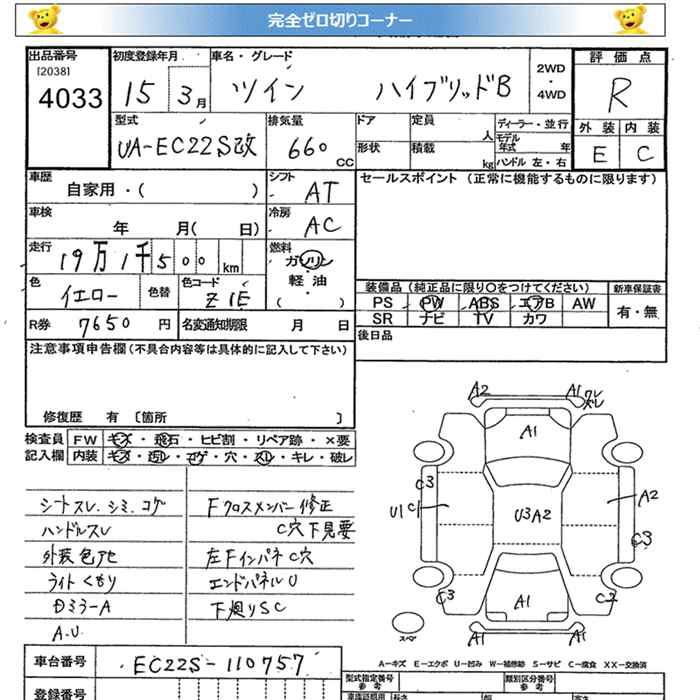 完全ゼロ切りコーナー
出品番号 初度登録年月 車名・グレード 評価点
[2038]
4033 15 3月 ツイン ハイブリッドB 2WD・4WD R
型式 排気量 ドア 定員 人 ディーラー・並行 外装 内装
UA-EC22S改 660 CC 形状 積載 kg モデル年式 年 ハンドル 左・右 E C
車歴 自家用・( ) シフト AT セールスポイント (正常に機能するものに限ります)
車検 年 月( 日) 冷房 AC
走行 19万1千500 km 燃料 ガソリン・軽油 ( )
色 イエロー 色替 色コード Z1E 装備品(純正品に限り〇をつけてください) 新車保証書
PS PW ABS エアB AW 有・無
SR ナビ TV カワ
R券 7650円 名変通知期限 月 日 後日品
注意事項申告欄(不具合内容等は具体的に記入して下さい)
修復歴 有 〔箇所 〕
検査員 FW キズ・飛石・ヒビ割・リペア跡・×要
記入欄 内装 キズ・汚レ・コゲ・穴・スレ・キレ・破レ
シートスレ、シミ、コゲ Fクロスメンバー修正
ハンドルスレ C穴下見要
外装色アセ 左FインパネC穴
ライトくもり エンドパネルU
Dミラー A 下廻りSC
A.U
A2 A1 ワレ ズレ
A1
C3 A2
U1 C1 U3A2
C3
C3 A1 C2
A1 A1
スペア
A-キズ E-エクボ U-凹み W-補修跡 S-サビ C-腐食 XX-交換済
車台番号 EC22S-110757
登録番号 型式指定番号 参考 類別区分番号 参考
車庫証明用 長さ 幅 高さ